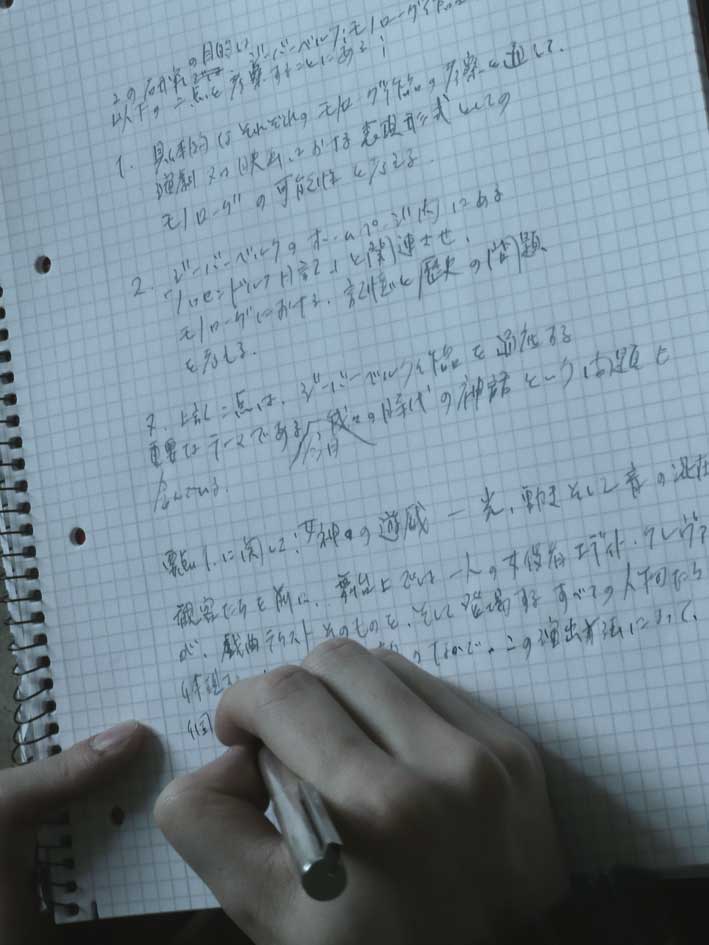 この研究の目的は、ジーバーベルク・モノローグ作品
以下の二点を考察することにある；
1. 具体的なそれぞれのモノローグ作品の考察を通して、
演劇又は映画における表現形式としての
モノローグの可能性を考える。
2. ジーバーベルクのホームページ内にある
と関連させ、
モノローグにおける、記憶と歴史の問題
を考える。
又、上記二点は、ジーバーベルク作品を通底する
重要なテーマである 我々の時代の神話という問題を
今日
含んでいる。
要点1.に関して：女神の遊戯 — 光、動きそして音の混在
観客たちを前に、舞台上では一人の女役者エディット・クレヴァー
が、戯曲テクストそのものを、そして登場するすべての人間たち
体現 のなかで、この演出方法によって、
個